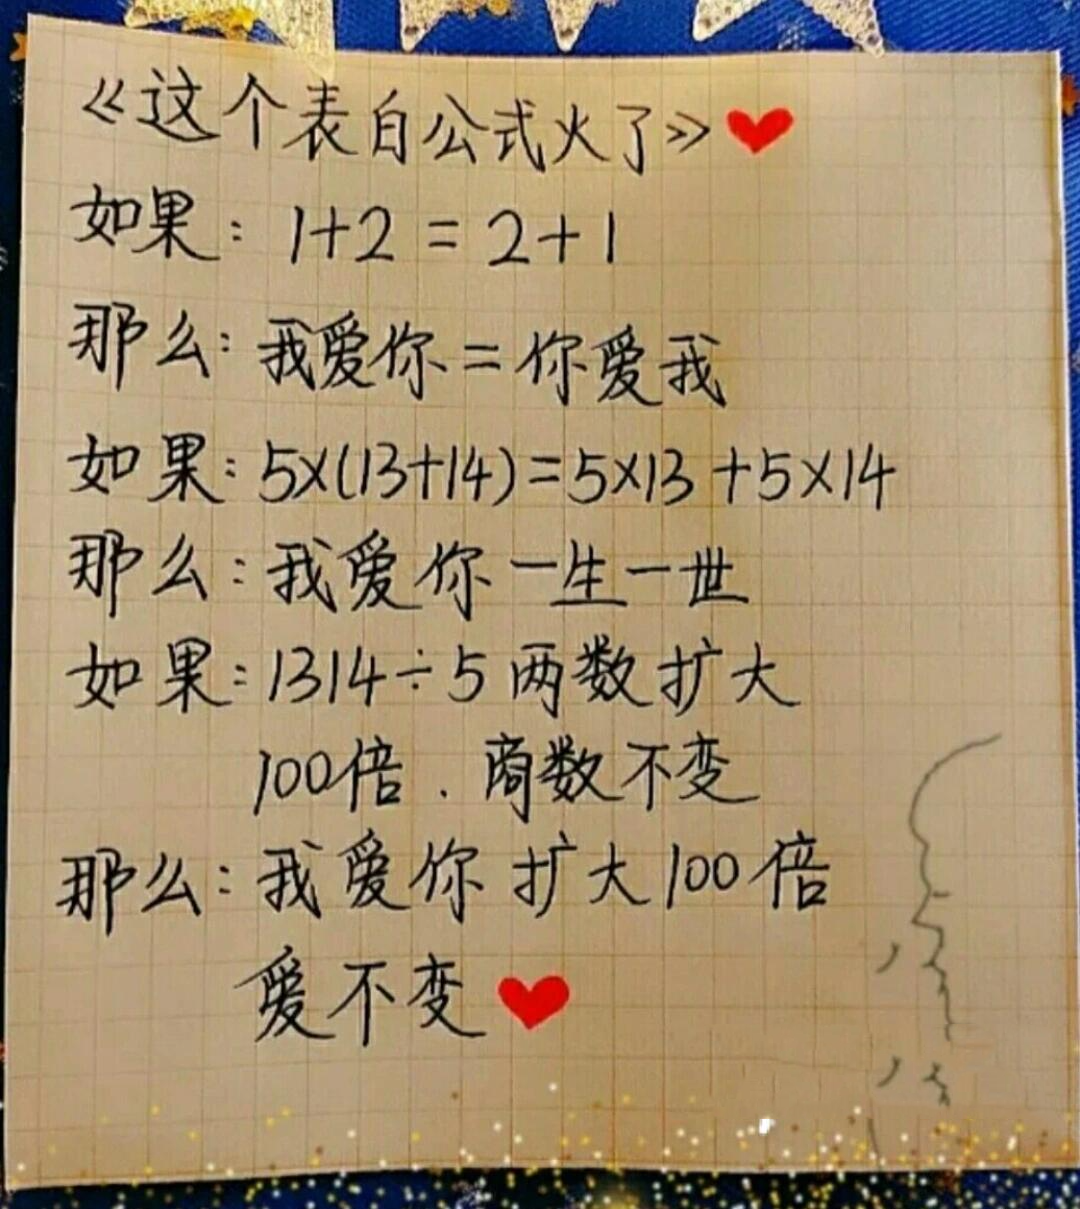 《这个表白公式火了》
如果：1+2=2+1
那么：我爱你=你爱我
如果：5×(13+14)=5×13+5×14
那么：我爱你一生一世
如果：1314÷5两数扩大
100倍．商数不变
那么：我爱你扩大100倍
爱不变